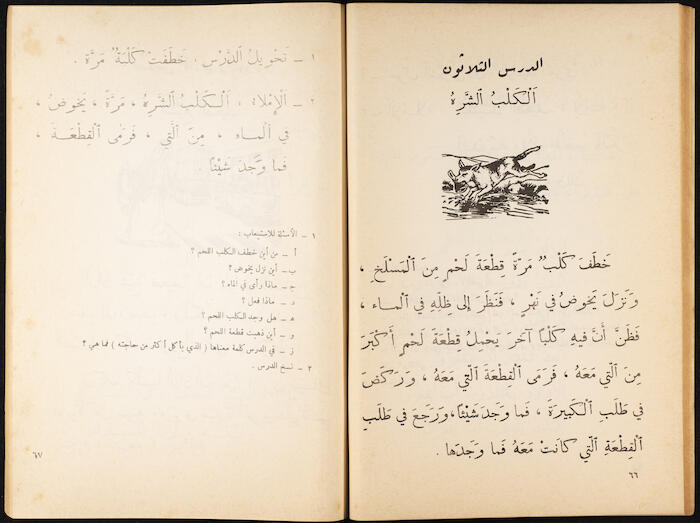 الدرس الثلاثون
اَلْكَلْبُ ٱلشَّرِهُ
خَطَفَ كَلْبٌ مَرَّةً قِطْعَةَ لَحْمٍ مِنَ ٱلْمَسْلَخِ ،
وَنَزَلَ يَخوضُ في نَهْرٍ ، فَنَظَرَ إِلى ظِلِّهِ في ٱلماء ،
فَظَنَّ أَنَّ فيهِ كَلْبًا آخَرَ يَحْمِلُ قِطْعَةَ لَحْمٍ أَكْبَرَ
مِنَ ٱلَّتي مَعَهُ ، فَرَمَى ٱلْقِطْعَةَ ٱلَّتي مَعَهُ ، وَرَكَضَ
في طَلَبِ ٱلْكَبيرَةِ ، فَما وَجَدَ شَيْئًا، وَرَجَعَ في طَلَبِ
ٱلْقِطْعَةِ ٱلَّتي كانَتْ مَعَهُ فَما وَجَدَها .
٦٦
١ – تَحْويلُ ٱلدَّرْسِ . خَطَفَتْ كَلْبَةٌ مَرَّةً .
٢ – اَلْإِمْلاءُ : اَلْكَلْبُ ٱلشَّرِهُ ، مَرَّةً ، يَخوضُ ،
في ٱلْماءِ ، مِنَ ٱلَّتي ، فَرَمَى ٱلْقِطْعَةَ ،
فَما وَجَدَ شَيْئًا .
١ – الأسئلة للاستيعاب :
أ – من أين خطف الكلب اللحم ؟
ب – أين نزل يخوض ؟
ج – ماذا رأى في الماء ؟
د – ماذا فعل ؟
هـ – هل وجد الكلب اللحم ؟
و – أين ذهبت قطعة اللحم ؟
ز – في الدرس كلمة معناها ( الذي يأكل أكثر من حاجته ) فما هي ؟
٢ – نسخ الدرس .
٦٧